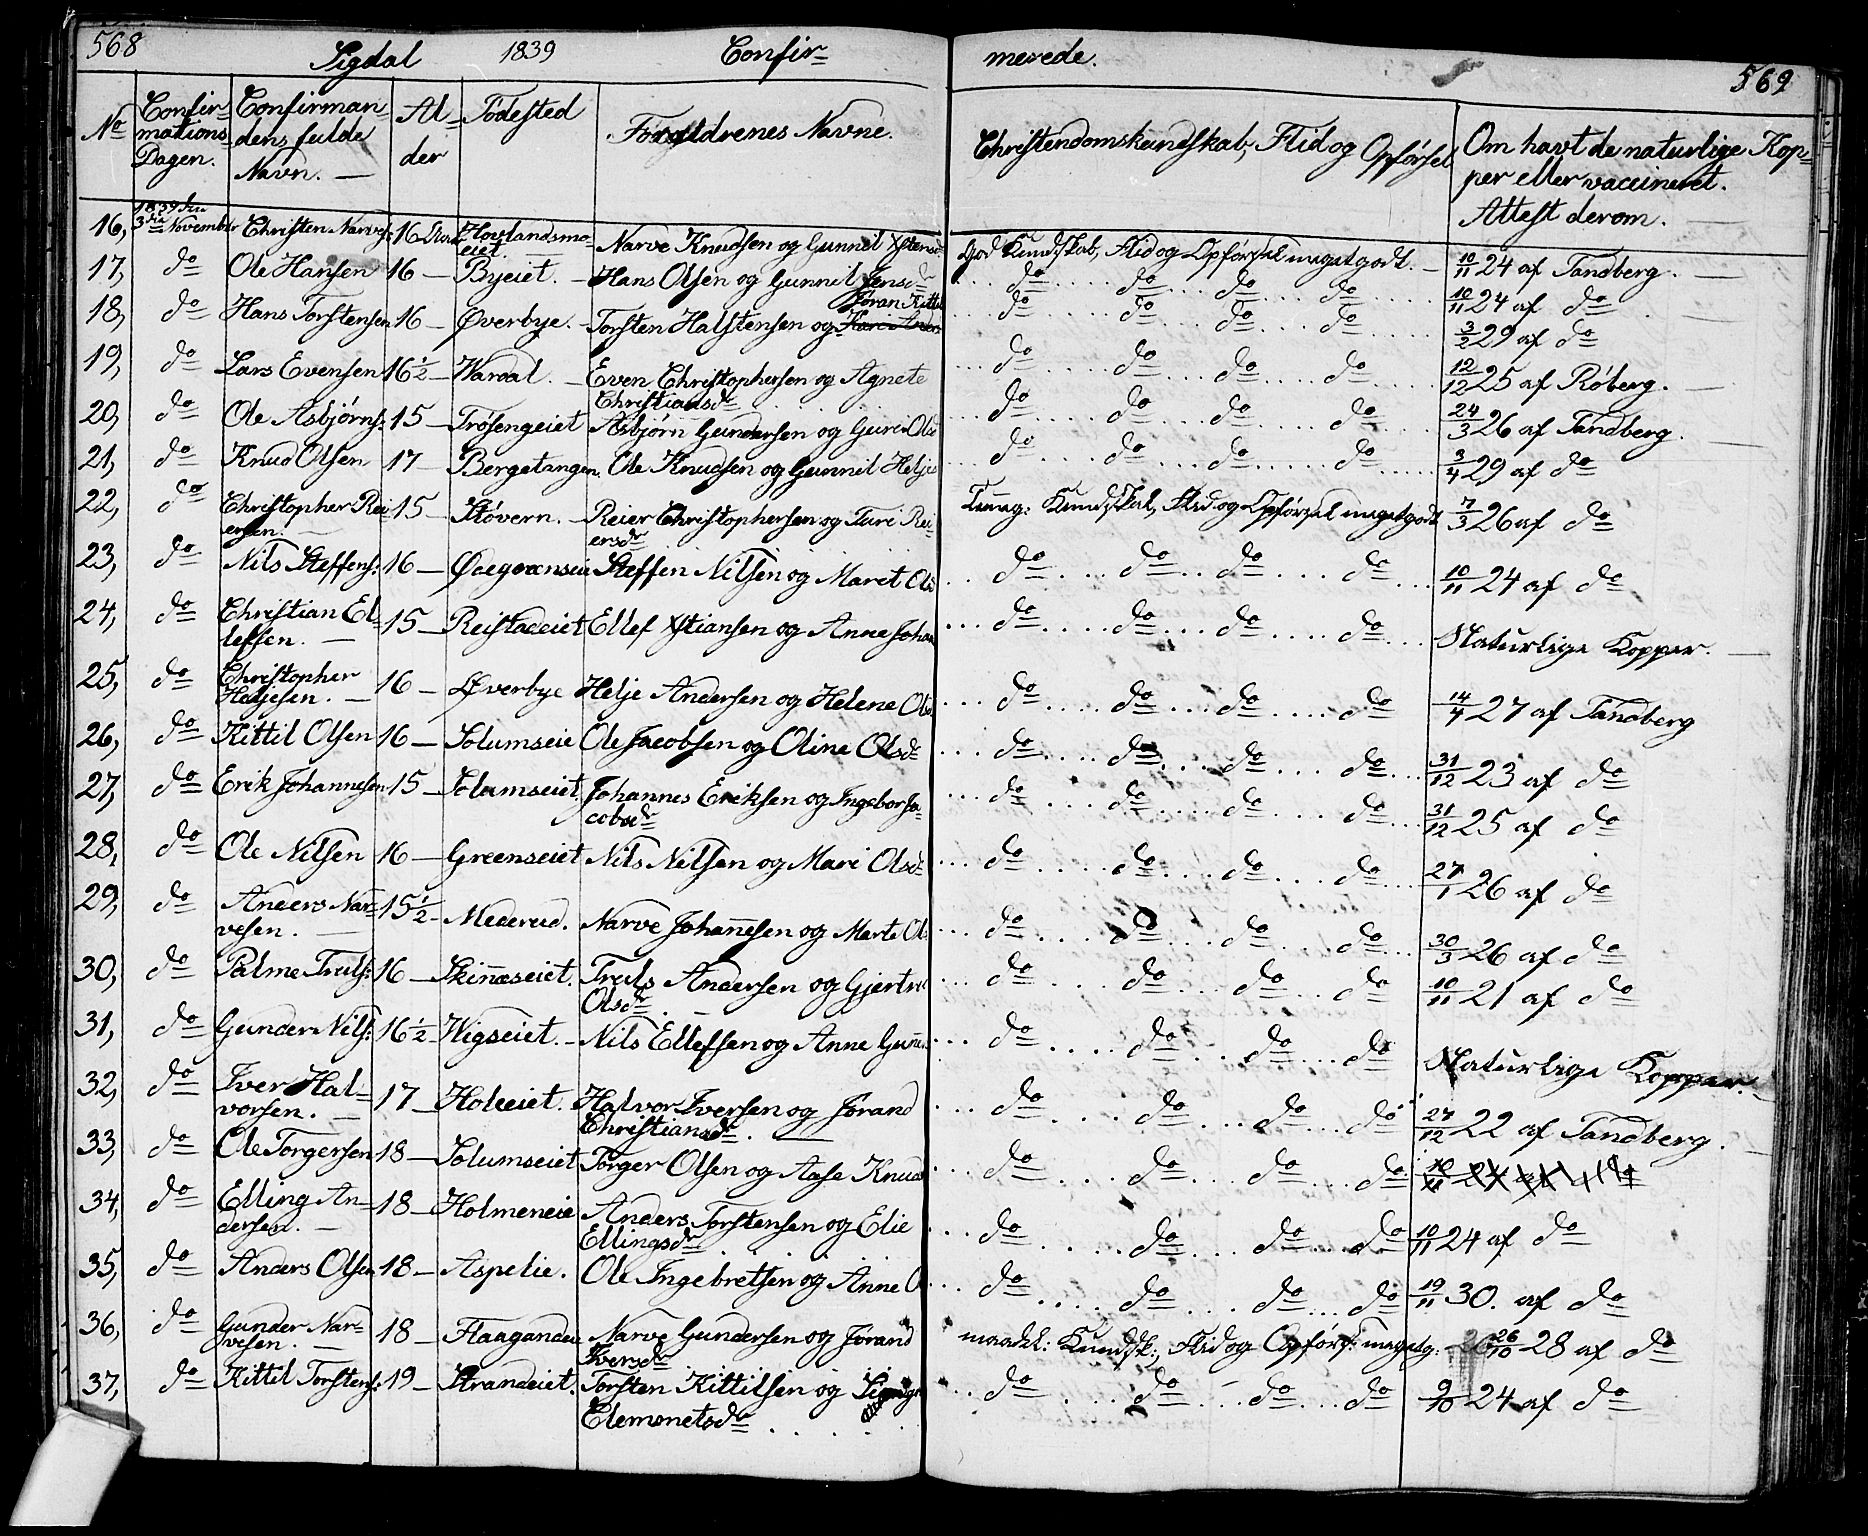 568 Sigdal 1839 Confir- merede. 569
No Confir- mations Dagen. Confirman- dens fulde Navn. — Al- der Fødested Forældrenes Navne. Christendomskundskab, Flid og Opførsel Om havt de naturlige Kop- per eller vaccineret. Attest derom.
16, 1839 den 3die November Christen Narves: 16 Hovlandsmo- eiet. Narve Knudsen og Gunnil God Kundskab, Flid og Opførsel meget godt. — 10/11 24 af Tandberg. —
17, do Ole Hansen 16 — Byeiet. — Hans Olsen og Gunnil Jensd do do do do 10/11 24 af do
18, do Hans Torstensen 16 — Øverbye. — Torsten Halstensen og Kari Joran Kittil do do do do 3/2 29 af do
19, do Lars Evensen 16½ — Waraal. — Even Christophersen og Agnete Christiansdr do do do do 12/12 25 af Röberg. —
20, do Ole Asbjörns: 15 — Trösengeiet Asbjörn Gundersen og Guri Ols do do do do 24/3 26 af Tandberg.
21, do Knud Olsen 17 — Bergetangen. Ole Knudsen og Gunnil Helje do do do do 3/4 29 af do
22, do Christopher Rei- ersen. — 15 — Stövern. — Reier Christophersen og Turi Rei- ersdr Kundskab, Flid og Opförsel meget godt 7/3 26 af do
23, do Nils Steffens: 16 — Steffen Nilsen og Maret Ols do do do do 10/11 24 af do
24, do Christian El- lefsen. — 15 — Reistadeiet Ellef Xstiansen og Anne Johan do do do do Naturlige Kopper. —
25, do Christopher Heljesen. — 16 — Øverbye Helje Andersen og Helene Ols do do do do 14/4 27 af Tandberg
26, do Kittil Olsen 16 — Solumseie Ole Jacobsen og Oline Olsdr do do do do 31/12 23 af do
27, do Erik Johannesen 15 — Solumseiet. Johannes Eriksen og Ingebor Ja- cobsdr do do do do 31/12 25 af do
28, do Ole Nilsen 16 — Greenseiet Nils Nilsen og Mari Olsdr do do do do 27/1 26 af do
29, do Anders Nar- vesen. — 15½ — Mederud. Narve Johannesen og Marte Ols do do do do 30/3 26 af do
30, do Palme Truls: 16 — Skinneseiet. Truls Andersen og Gjertru Olsdr do do do do 10/11 21 af do
31, do Gunder Nils: 16½ — Wigseiet. — Nils Ellefsen og Anne Gun do do do do Naturlige Kopper.
32, do Iver Hal- vorsen. — 17 — Holeeiet. Halvor Iversen og Jörand Christiansdr. — do do do do 27/12 22 af Tandberg.
33, do Ole Torgersen 18 — Solumseiet Torger Olsen og Aase Knud do do do do
34, do Elling An- dersen. — 18 — Holmeneie Anders Torstensen og Elie Ellingsdr do do do do 10/11 24 af do
35, do Anders Olsen 18 — Aspelie. Ole Ingebretsen og Anne O do do do do 19/11 30. af do
36, do Gunder Nar- vesen. — 18 — Narve Gundersen og Jörand Iversdr maadel: Kundsk:, Flid og Opförs: meget g: 26/10 28 af do
37, do Kittil Torstens: 19 — Strandeiet. Torsten Kittilsen og Clemmetsdr do do do do 9/10 24 af do